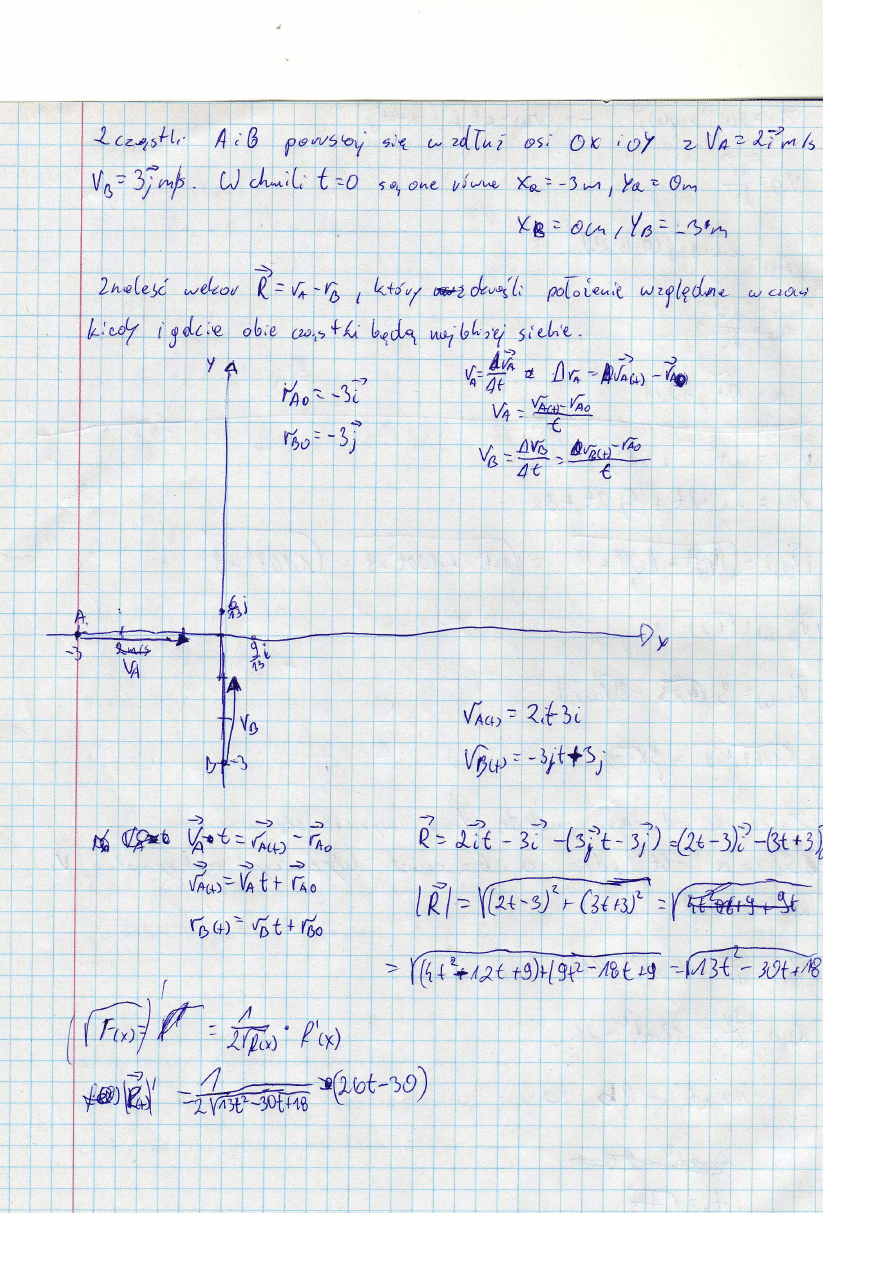 2 cząstki A i B poruszaj się wzdłuż osi OX i OY z V_A = 2i⃗ m/s
V_B = 3j⃗ m/s. W chwili t=0 są one równe X_a = -3m, Y_a = 0m
X_B = 0m, Y_B = -3m
Znaleść wektor R⃗ = r_A - r_B, który określi położenie względne w czasi
kiedy i gdzie obie cząstki będą najbliżej siebie.
Y
r_A0 = -3i⃗
r_B0 = -3j⃗
V_A = Δr⃗_A/Δt Δr_A = r⃗_A(t) - r⃗_A0
V_A = (r_A(t) - r_A0)/t
V_B = Δr_B/Δt = (r_B(t) - r_A0)/t
6/13 j
A
-3
2m/s
V_A
9/13 i
X
V_B
B -3
r_A(t) = 2it-3i
r_B(t) = -3jt+3j
V⃗_A t = r⃗_A(t) - r⃗_A0
r⃗_A(t) = V⃗_A t + r⃗_A0
r_B(t) = V_B t + r_B0
R⃗ = 2i⃗t - 3i⃗ - (3j⃗t - 3j⃗) = (2t-3)i⃗ - (3t+3)j
|R⃗| = √((2t-3)² + (3t+3)²) =
= √((4t²-12t+9)+(9t²-18t+9) = √13t²-30t+18
(√F(x))' = 1/(2√F(x)) · F'(x)
|R⃗(t)|' = 1/(2√13t²-30t+18) · (26t-30)